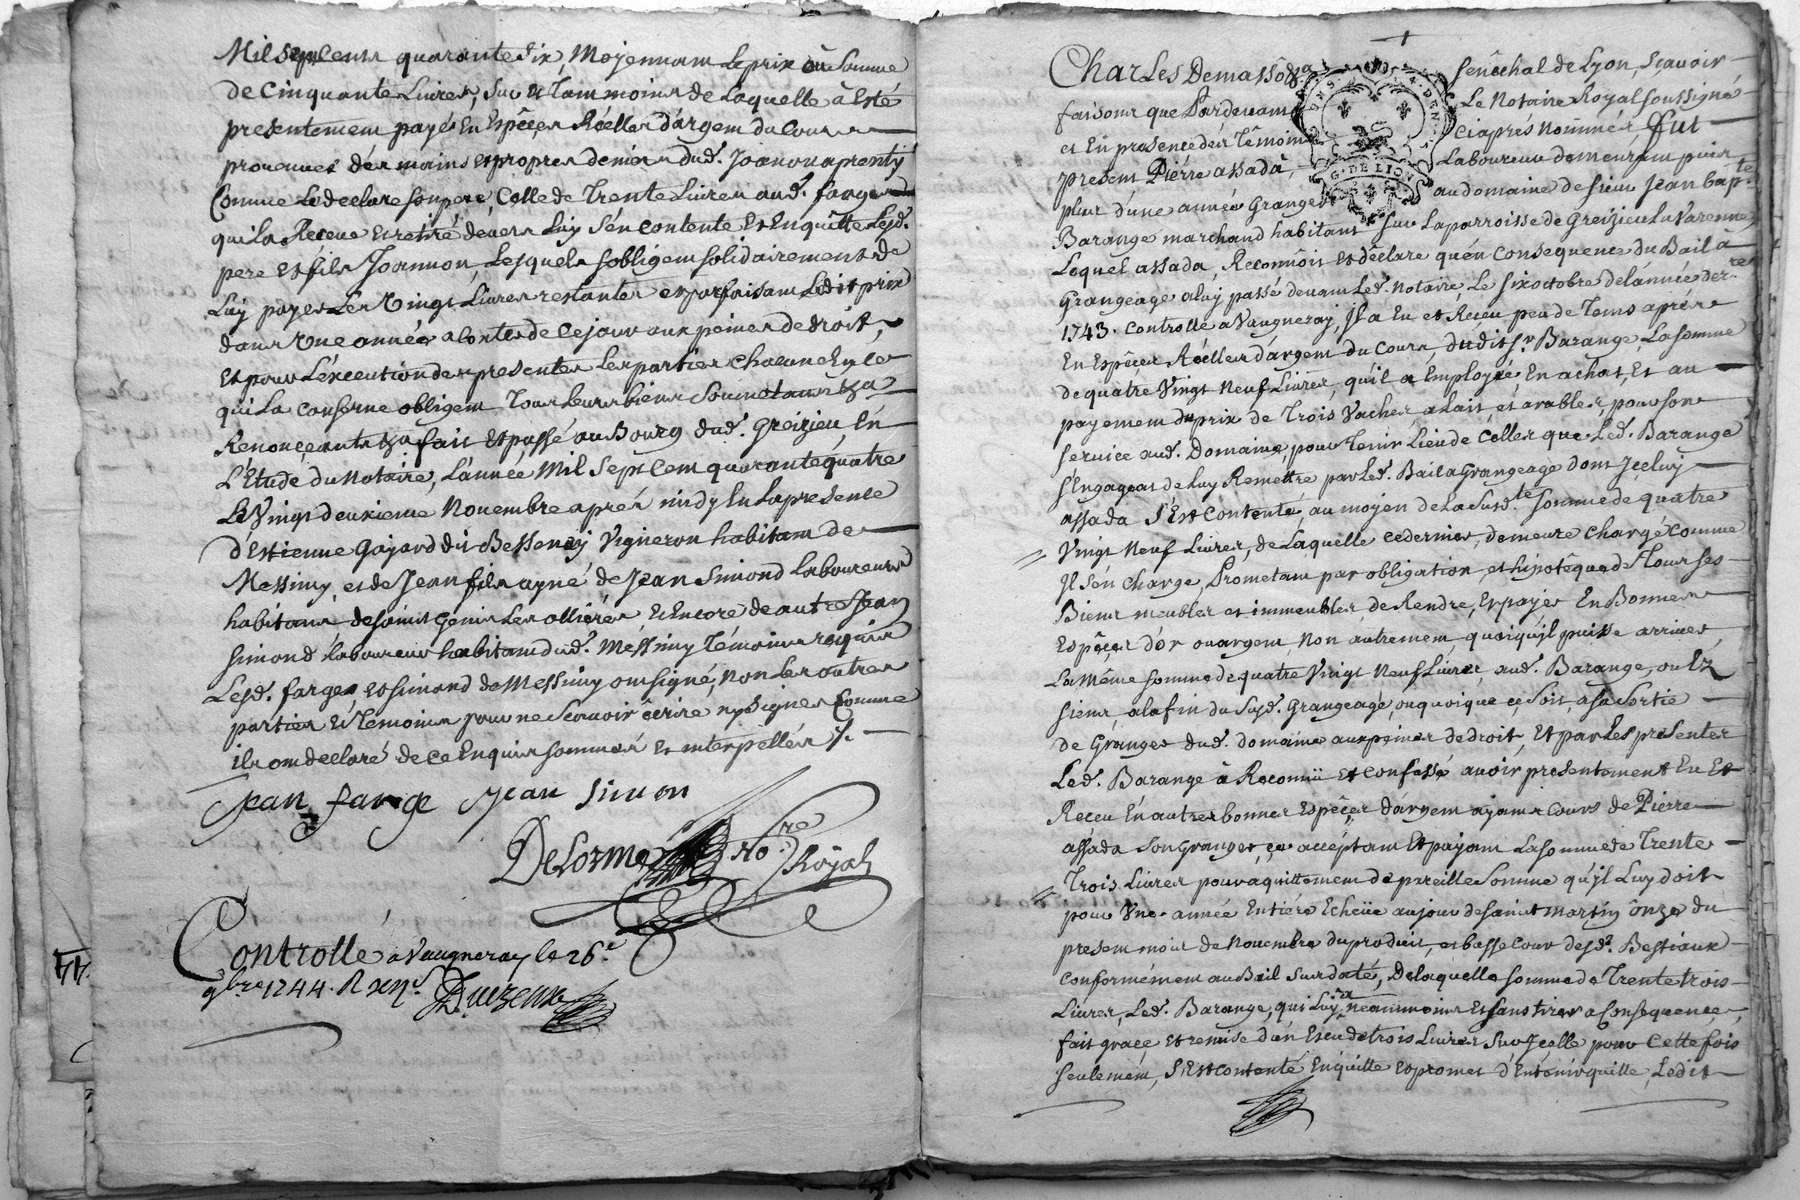 Mil sept cens quarante six, Moyennant Le prix ou Somme
de Cinquante Livres, Sur et Tant moins de Laquelle à Esté
presentement payé En Espêces Réelles d'argent du Cours
provenues des mains et propres deniers dud. Joannon aprentif
Comme Le declare son pere, Celle de Trente Livres aud. farges
qui La Receue et retiré devers Luy S'en contente et En quitte Lesd.
pere et fils Joannon, Lesquels s'obligent solidairement de
Luy payer Les Vingt Livres restantes et parfaisant Ledit prix
dans Une année a Conter de Ce jour aux peines de droit,
Et pour L'execution des presentes Les parties Chacune En ce
qui La Conserne obligent Tous Leurs biens Soumetans &a
Renonceants &a fait et passé au Bourg dud. Greizieu, En
L'Etude du Notaire, L'année Mil Sept Cent quarante quatre
Le Vingt deuxieme Novembre aprés midy En La presence
d'Estienne Gayard dit Bessenay Vigneron habitant de
Messimy, et de Jean fils ayné de Jean Simond Laboureurs
habitans de saint Genis Les ollières, et Encore de autre Jean
Simond Laboureur habitant dud. Messimy Témoins requis
Lesd. farges, et Simond de Messimy ont signé, non Les autres
parties et Témoins pour ne Scavoir écrire ny Signer Comme
ils ont declaré de ce Enquis sommés et interpellés ./.
Jean farge Jean Simon
Delorme No.re Royal
Controllé a Vaugneray le 26.e
9bre 1744. R
44
Charles Demassô &a Senêchal de Lyon, sçavoir
faisons que Pardevant Le Notaire Royal soussigné
et En presence des Témoins Ciaprés Nommés fut
present Piérre assada, Laboureur demeurant puis
plus d'une année Granger au domaine de sieur Jean Bapte
Barange marchand habitant sur La parroisse de Greizieu La Varenne
Lequel assada, Reconnoit et déclare qu'en Consequence du Bail à
Grangeage aluy passé devant Led. notaire Le six octobre de L'année derre
1743. Controllé a Vaugneray, Il a Eu et Receu peu de Tems aprés
En Espêces Réelles d'argent du Cours, dudit Sr. Barange, La Somme
de quatre Vingt Neuf Livres, qu'il a Employée En achat, Et au
payement du prix de Trois Vaches, a Lait et arables, pour son
service aud. Domaine, pour Tenir Lieu de Celles que Led. Barange
s'Engageat de Luy Remettre par Led. Bail a Grangeage dont Jceluy
assada S'Est Contenté, au moyen de La Susd.te Somme de quatre
Vingt Neuf Livres, de Laquelle ce dernier, demeure Chargé comme
Il s'en Charge, Prometant par obligation, et hipotêque de Tous ses
Biens meubles et immeubles, de Rendre, Et payer En Bonnes
Espêces d'or ou argent, Non autrement, quoiqu'il puisse arriver,
La Même Somme de quatre Vingt Neuf Livres, aud. Barange, ou Ez
siens, a la fin du Susd. Grangeage, ou quoique ce Soit, a Sa Sortie
de Granger dud. domaine aux peines de droit, Et par Les presentes
Led. Barange à Reconnü Et Confessé avoir presentement Eu Et
Receu En autres bonnes Espêces d'argent ayant Cours de Pierre
assada Son Granger, ce acceptant Et payant La somme de Trente
Trois Livres pour aquittement de pareille Somme qu'il Luy doit
pour Une année Entiére Echeüe au jour de saint Martin ônze du
present mois de Novembre du produit, et basse Cour desd. Bestiaux
Conformément au Bail Surdaté, De Laquelle somme de Trente trois
Livres, Led. Barange, qui Luy à neantmoins Et Sans tirer a Consequence,
fait grace Et remise d'un Escu de trois Livres Sur Jcelle pour Cette fois
seulement, S'Est Contenté En quitte Et promet d'En tenir quitte, Ledit
G. DE LION